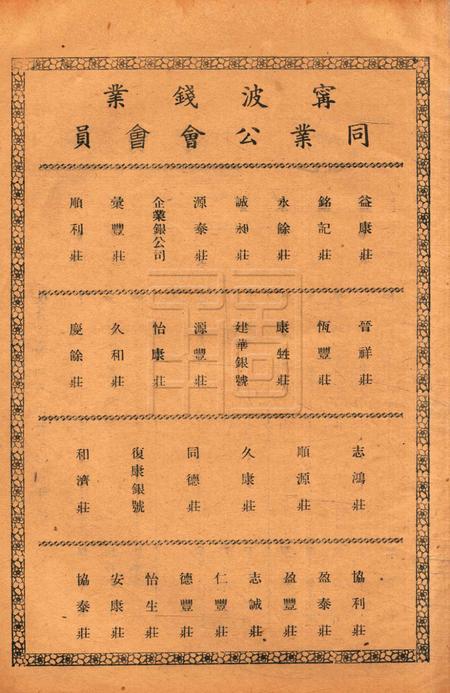 甯波錢業
同業公會會員
益康莊
銘記莊
永餘莊
誠昶莊
源泰莊
企業銀公司
彙豐莊
順利莊
晉祥莊
恆豐莊
康甡莊
建華銀號
源豐莊
怡康莊
久和莊
慶餘莊
志鴻莊
順源莊
久康莊
同德莊
復康銀號
和濟莊
協利莊
盈泰莊
盈豐莊
志誠莊
仁豐莊
德豐莊
怡生莊
安康莊
協泰莊